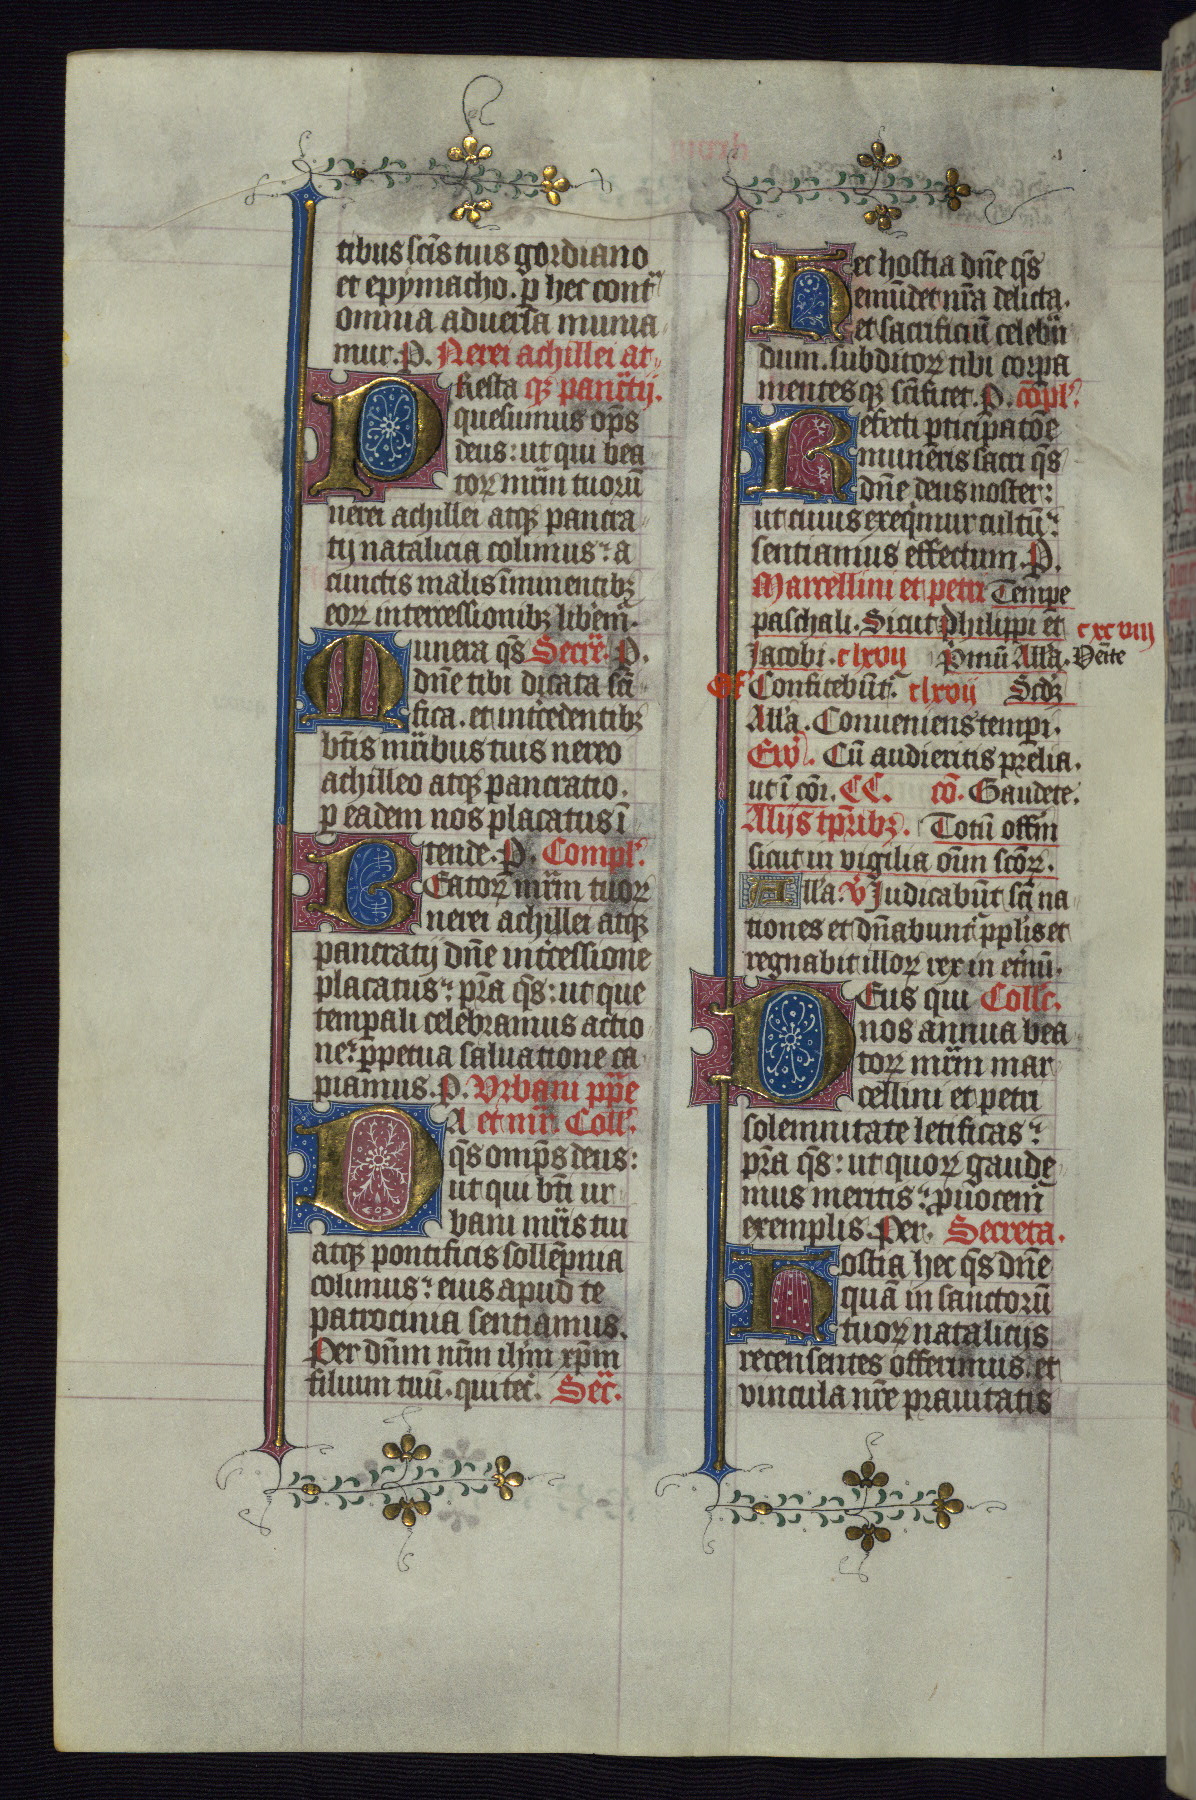 tibus scīs tuis gordiano
et epymacho. p hec cont̄
omnia aduersa munia
mur. P. Nerei achillei at
Resta qꝫ pancᵃtij.
quesumus op̄s
deus: ut qui bea
toꝝ mr̄im tuorū
nerei achillei atqꝫ pancra
tij natalicia colimus: a
cunctis malis īminentibꝫ
eoꝝ intercessionibꝫ liberem̄.
Munera qs̄ Secre. P.
dn̄e tibi dicata sc̄i
fica. et int̄cedentibꝫ
bt̄is mr̄ibus tuis nereo
achilleo atqꝫ pancratio.
p eadem nos placatus ī
tende. P. Compl.
BEatoꝝ mr̄im tuoꝝ
nerei achillei atqꝫ
pancratij dn̄e int̄cessione
placatus: pr̄a qs̄: ut que
temp̄ali celebramus actio
ne: ꝑpetua saluatione ca
piamus. P. Vrbani pp̄e
DA et mr̄. Coll.
qs̄ omp̄s deus:
ut qui bt̄i ur
bani mr̄is tui
atqꝫ pontificis sollēpnia
colimus: eius apud te
patrocinia sentiamus.
Per dn̄m nr̄m ihm̄ xp̄m
filium tuū. qui tec̄. Secr̄.
Hec hostia dn̄e qs̄
emūdet nr̄a delicta.
et sacrificiū celebrā
dum. subditoꝝ tibi corpa
mentesqꝫ sc̄ificet. P. cōpl.
Refecti ꝑticipatōe
muneris sacri qs̄
dn̄e deus noster:
ut cuius exeqimur cultū:
sentiamus effectum. P.
Marcellini et petri Tempe
paschali. Sicut Philippi et cxcviij
Jacobi. clxvij Pmū Alla. Venite
Of Confitebūt. clxvij Scdꝫ
Alla. Conueniens tempi.
Ew̄. Cū audieritis prelia.
ut ī cōi. CC. cō. Gaudete.
Alijs tpr̄ibꝫ. Totū offm̄
sicut in vigilia oīm scōꝝ.
Alla. V Judicabūt sc̄i na
tiones et dn̄abunt pplis et
regnabit illoꝝ rex in et̄nū.
DEus qui Collc̄.
nos annua bea
toꝝ mr̄im mar
cellini et petri
solemnitate letificas:
pr̄a qs̄: ut quoꝝ gaude
mus meritis: ꝓuocem̄
exemplis. Per. Secreta.
Hostia hec qs̄ dn̄e
quā in sanctorū
tuoꝝ natalicijs
recensentes offerimus. et
vincula nr̄e prauitatis